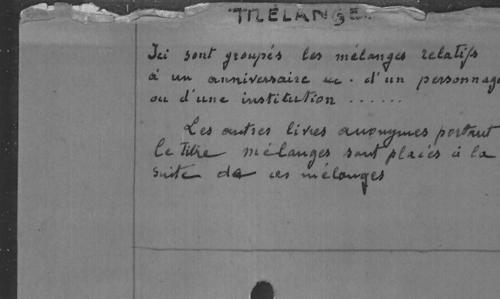 MÉLANGE
Ici sont groupés les mélanges relatifs
à un anniversaire d'un personnage
ou d'une institution ......
Les autres livres anonymes portant
le titre mélanges sont placés à la
suite de ces mélanges